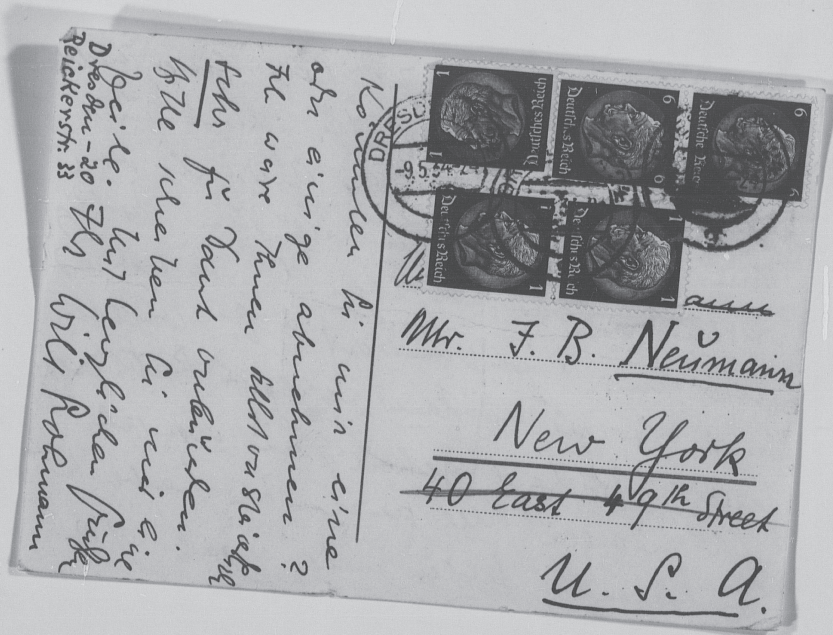 Können Sie mir eine
oder einige abnehmen?
Ich wäre Ihnen selbstverständlich
sehr für Dank verbunden.
Bitte schreiben Sie mir eine
Zeile. Mit herzlichen Grüßen
Ihr Will
Dresden-20
Reickerstr. 33
DRESD
9.5.34
Deutsches Reich
1
1
Deutsches Reich
6
6
Deutsches Reich
6
6
Deutsches Reich
1
1
Deutsches Reich
1
1
Mr. J. B. Neumann
New York
40 East 49th Street
U. S. A.